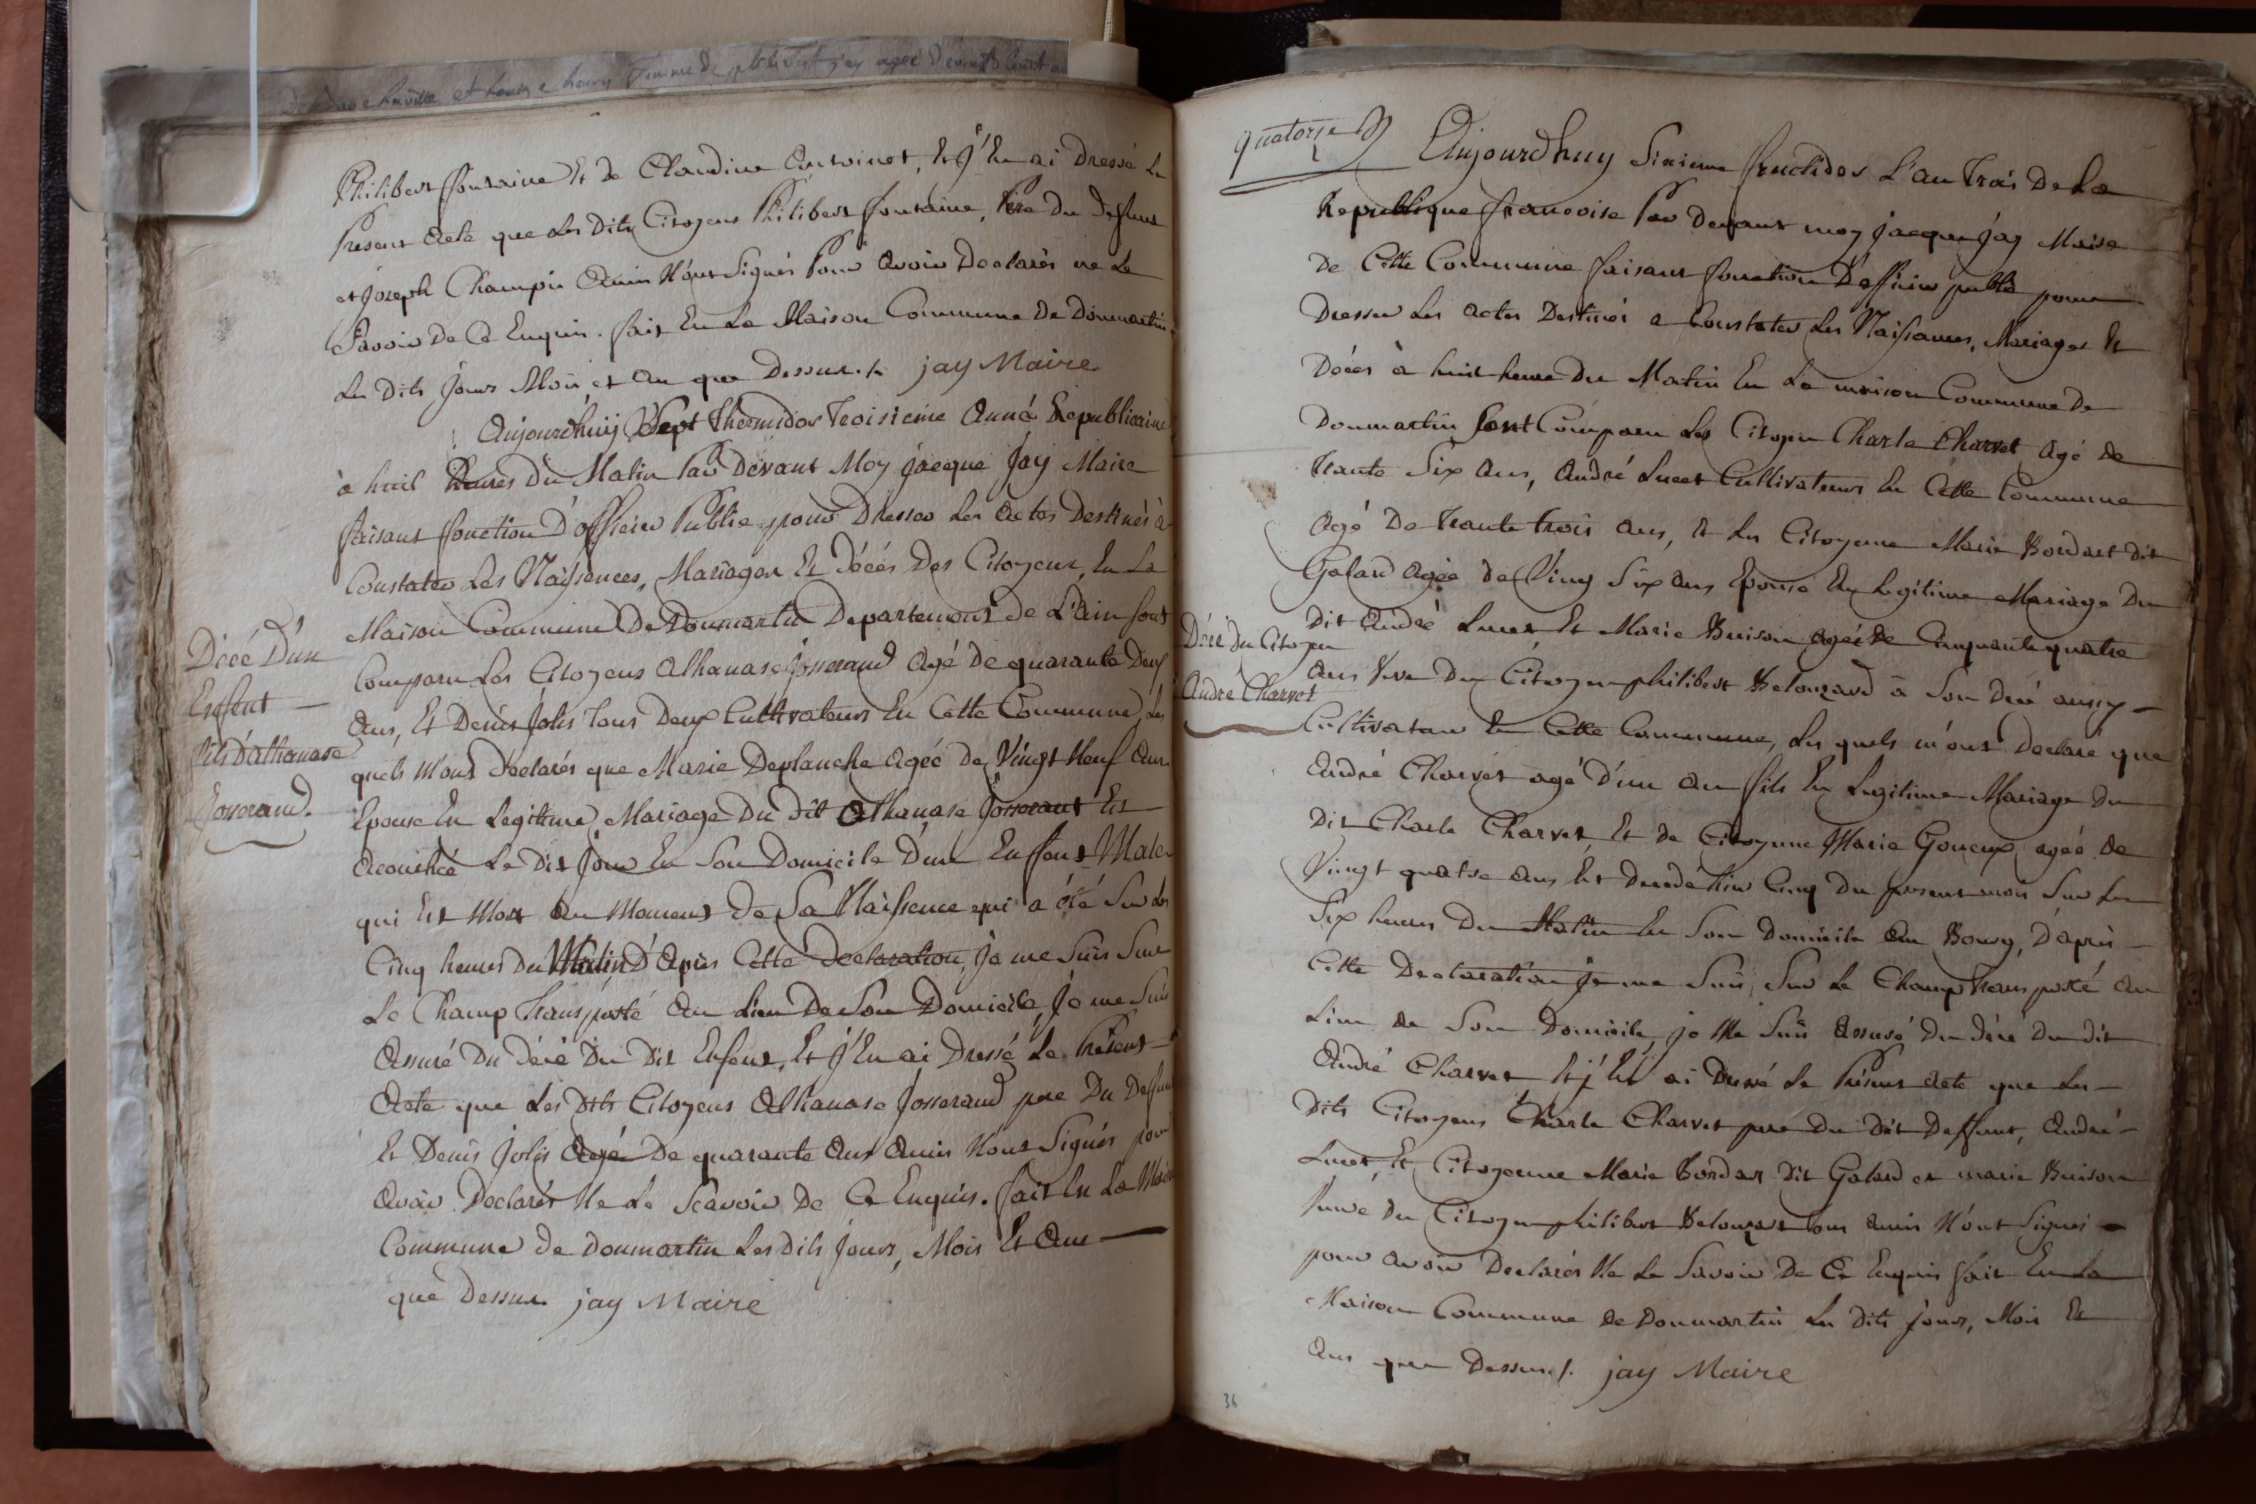 Philibert fontaine Et de Claudine Antoinet, Et j'En ai Dressé Le
Present Acte que Les Dits Citoyens Philibert fontaine, Pere Du Deffunt
et Joseph Champin Amin N'ont Signés Pour Avoir Declarés ne Le
Savoir De Ce Enquin. fait En La Maison Commune De Donmartin
Les Dits Jours Mois et An que Dessus./. jay Maire
Aujourdhuij Sept thermidor Troisieme Année Republicaine
à huit heures Du Matin Par Devant Moy jacque Jay Maire
faisant fonction D'officier Public pour Dresser Les Actes Destinés à
Constater Les Naissences, Mariages Et Décés Des Citoyens, En La
Maison Commune De Donmartin Departement de L'ain sont
Comparu Les Citoyens Athanase Josserand Agé De quarante Deux
Ans, Et Denis Jolis Tous Deux Cultivateurs En Cette Commune, Les
quels M'ont Déclarés que Marie Deplanche Agée De Vingt Neuf Ans
Epouse En Legitime Mariage Du Dit Athanase Josserant Est
Acouchée Le Dit Jour En Son Domicile D'un Enffent Male
qui Est Mort Au Moment De Sa Naissence qui a été Sur Les
Cinq heures Du Matin D'Après Cette Declaration, Je me Suis Sur
Le Champ Transporté Au Lieu De Son Domicile, Je me Suis
Assuré Du Décé Du Dit Enfent, Et j'En ai Dressé Le Présent
Acte que Les Dits Citoyens Athanase Josserand pere Du Deffunt
Et Denis Jolis Agé De quarante Ans Amin N'ont Signés pour
Avoir Declarés Ne Le Scavoir De Ce Enquis. fait En La Maison
Commune de Donmartin Les Dits Jours, Mois Et An
que Dessus jay Maire
Décé D'un
Enfent
fils D'athanase
Josserand.
quatorze
Aujourdhuy Sixieme fructidor L'an trois De La
Republique francoise Par Devant moy jacque Jay Maire
De Cette Commune faisant fonction D'officier public pour
Dresser Les Actes Destinés a Constater Les Naissances, Mariages Et
Décés à huit heure Du Matin En La maison Commune De
Donmartin Sont Comparu Les Citoyen Charle Charvet Agé de
trante Six Ans, André Lucet Cultivateurs En Cette Commune
Agé De trante trois Ans, Et Les Citoyenne Marie Bordart dit
Galard Agée De Ving Six Ans Epouse En Legitime Mariage Du
Dit André Lucet, Et Marie Buison agée De Cinquante quatre
Ans Veve Du Citoyen philibert Belouzard à Son Décé aussy
Cultivateur En Cette Commune, Les quels m'ont Declaré que
André Charvet agé D'un An fils En Legitime Mariage Du
Dit Charle Charvet, Et De Citoyenne Marie Goneux agée De
Vingt quatre Ans Est Decedé hier Cinq Du present mois Sur Les
Six heures Du Matin En Son Domicile Au Bourg, D'après
Cette Declaration Je me Suis, Sur Le Champ Transporté Au
Lieu De Son Domicile, je Me Suis Assuré Du Décé Du dit
André Charvet Et j'En ai Dressé Le Présent Acte que Les
Dits Citoyens Charle Charvet pere Du Dit Deffunt, André
Lucet, Et Citoyenne Marie Bordar Dit Galard et marie Buison
Veuve Du Citoyen philibert Belouzart tous amin N'ont Signés
pour Avoir Declarés Ne Le Savoir De Ce Enquis fait En La
Maison Commune De Donmartin Les Dits Jours, Mois Et
Ans que Dessus./. jay Maire
Décé Du Citoyen
André Charvet
36